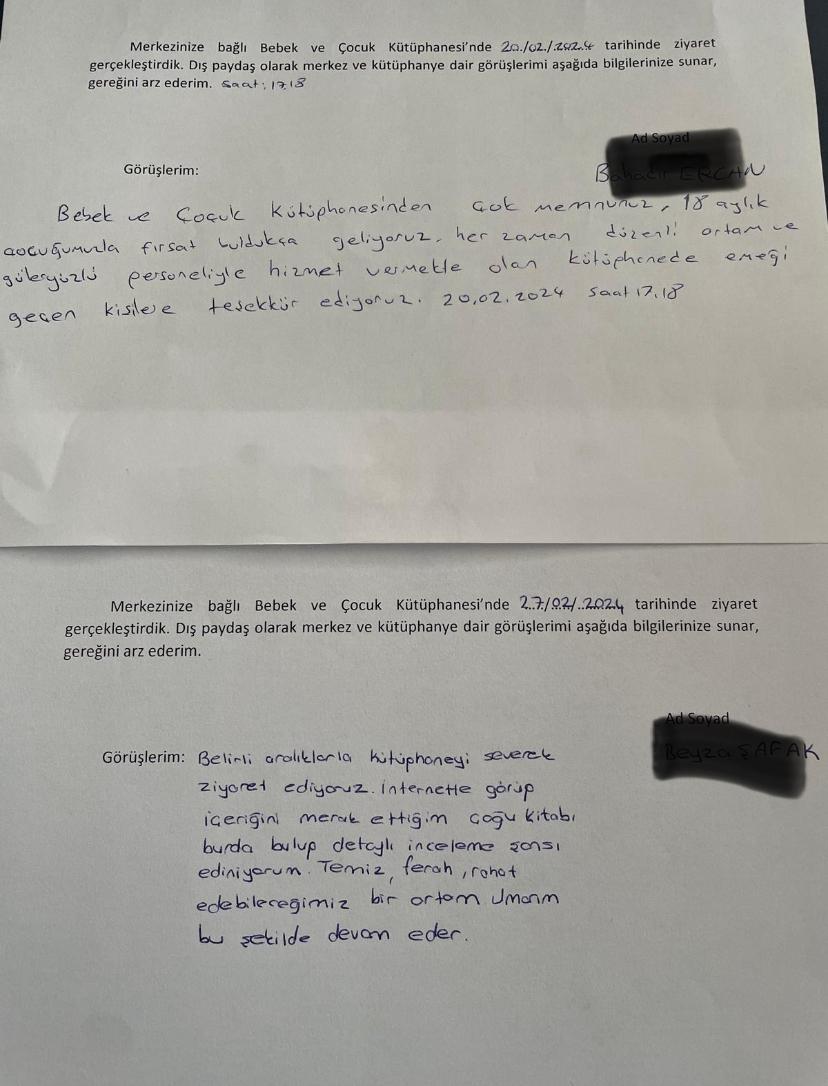 Merkezinize bağlı Bebek ve Çocuk Kütüphanesi'nde 20./02./.2024 tarihinde ziyaret
gerçekleştirdik. Dış paydaş olarak merkez ve kütüphanye dair görüşlerimi aşağıda bilgilerinize sunar,
gereğini arz ederim. Saat: 17.18
Ad Soyad
Görüşlerim:
Bebek ve Çocuk Kütüphanesinden çok memnunuz, 18 aylık
çocuğumuzla fırsat buldukça geliyoruz, her zaman düzenli ortam ve
güleryüzlü personeliyle hizmet vermekte olan kütüphanede emeği
geçen kişilere teşekkür ediyoruz. 20.02.2024 Saat 17.18
Merkezinize bağlı Bebek ve Çocuk Kütüphanesi'nde 2.7./02/..2024 tarihinde ziyaret
gerçekleştirdik. Dış paydaş olarak merkez ve kütüphanye dair görüşlerimi aşağıda bilgilerinize sunar,
gereğini arz ederim.
Ad Soyad
Görüşlerim: Belirli aralıklarla kütüphaneyi severek
ziyaret ediyoruz. İnternette görüp
içeriğini merak ettiğim çoğu kitabı
burda bulup detaylı inceleme şansı
ediniyorum. Temiz, ferah, rahat
edebileceğimiz bir ortam umarım
bu şekilde devam eder.